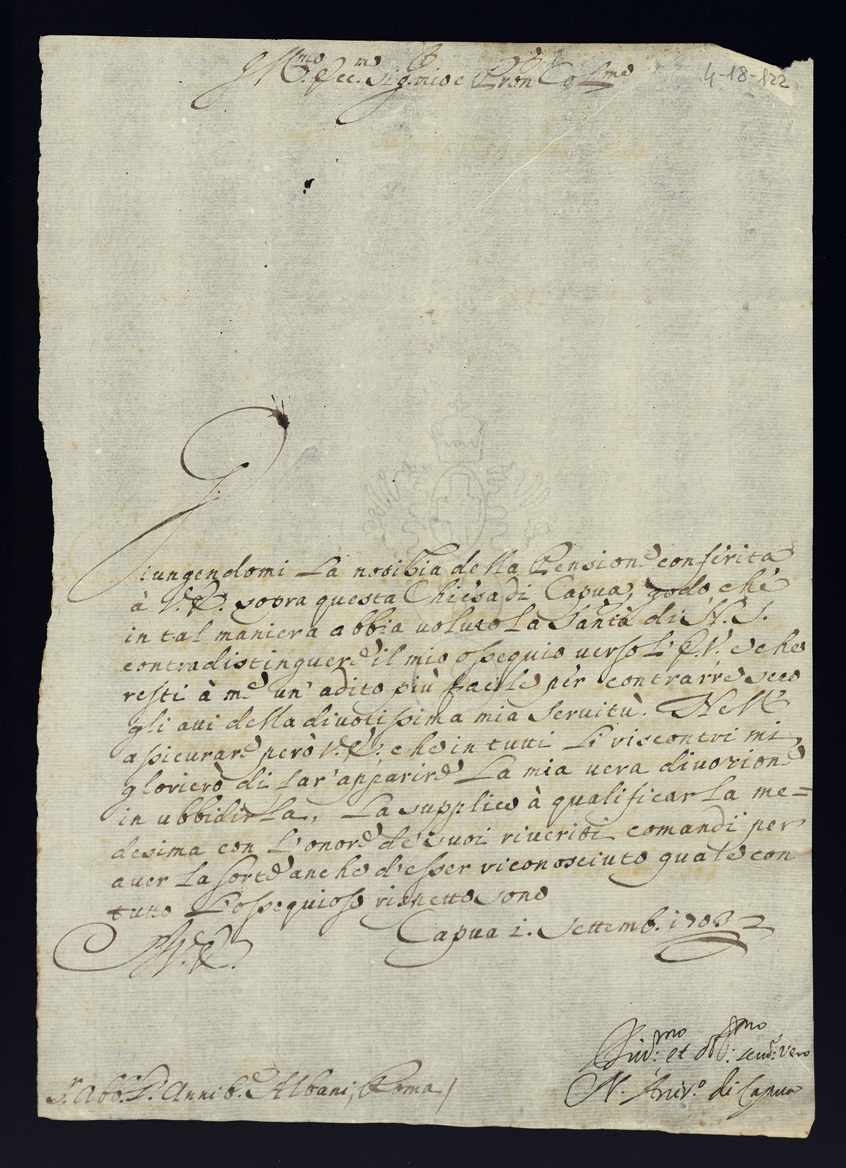 Ill.mo ecc.mo Sig. mio e Pron Col.mo
4-18-122
Giungendomi la notitia della Pensione conferita
à V.E. sopra questa Chiesa di Capua, godo che
in tal maniera abbia voluto la Santà di N. S.
contradistinguere il mio ossequio verso l'E.V. e che
resti à me un' adito più facile per contrarre seco
gli atti della divotissima mia servitù. Nell'
assicurare però V.E., che in tutti li riscontri mi
glorierò di far' apparire la mia vera divozione
in ubbidirla, la supplico à qualificar la me=
desima con l'onore de' suoi riveriti comandi per
aver la sorte anche d'esser riconosciuto quale con
tutto l'ossequioso rispetto sono
Capua 2. Settemb. 1703
D. V. E.
Div.mo et obb.mo serv. vero
N. Arciv.o di Capua
S.r Abb.e D. Annib.e Albani, Roma /